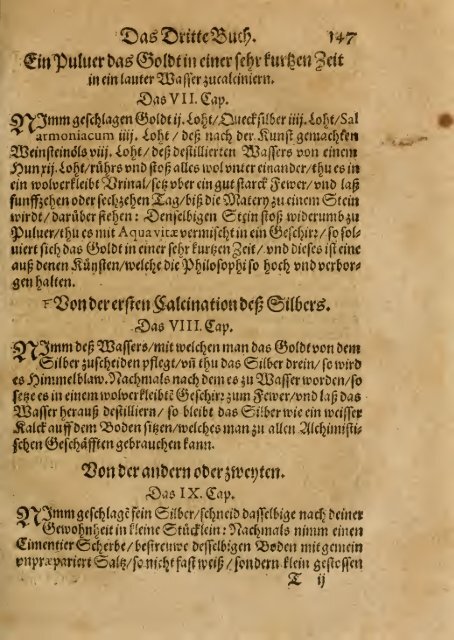 Das Dritte Buch. 147
Ein Puluer das Goldt in einer sehr kurtzen Zeit
in ein lauter Wasser zu calciniern.
Das VII. Cap.
NImm geschlagen Goldt ij. Loht / Quecksilber iiij. Loht / Sal
armoniacum iiij. Loht / deß nach der Kunst gemachten
Weinsteinöls viij. Loht / deß destillierten Wassers von einem
Hun rij. Loht / rührs vnd stoß alles wol vnter einander / thu es in
ein wolverkleibt Vrinal / setz vber ein gut starck Fewer / vnd laß
funffzehen oder sechzehen Tag / biß die Matery zu einem Stein
wirdt / darüber stehen: Denselbigen Stein stoß widerumb zu
Puluer / thu es mit Aqua vitæ vermischt in ein Geschir: / so sol-
uiert sich das Goldt in einer sehr kurtzen Zeit / vnd dieses ist eine
auß denen Künsten / welche die Philosophi so hoch vnd verbor-
gen halten.
Von der ersten Calcination deß Silbers.
Das VIII. Cap.
NImm deß Wassers / mit welchen man das Goldt von dem
Silber zuscheiden pflegt / vñ thu das Silber drein / so wird
es Himmelblaw. Nachmals nach dem es zu Wasser worden / so
setze es in einem wolverkleibtē Geschir: zum Fewer / vnd laß das
Wasser herauß destilliern / so bleibt das Silber wie ein weisser
Kalck auff dem Boden sitzen / welches man zu allen Alchimisti-
schen Geschäfften gebrauchen kann.
Von der andern oder zweyten.
Das IX. Cap.
NImm geschlagē fein Silber / schneid dasselbige nach deiner
Gewohnheit in kleine Stücklein: Nachmals nimm einen
Cimentier Scherbe / bestrewe desselbigen Boden mit gemein
vnpræpariert Saltz / so nicht fast weiß / sondern klein gestossen
T ij